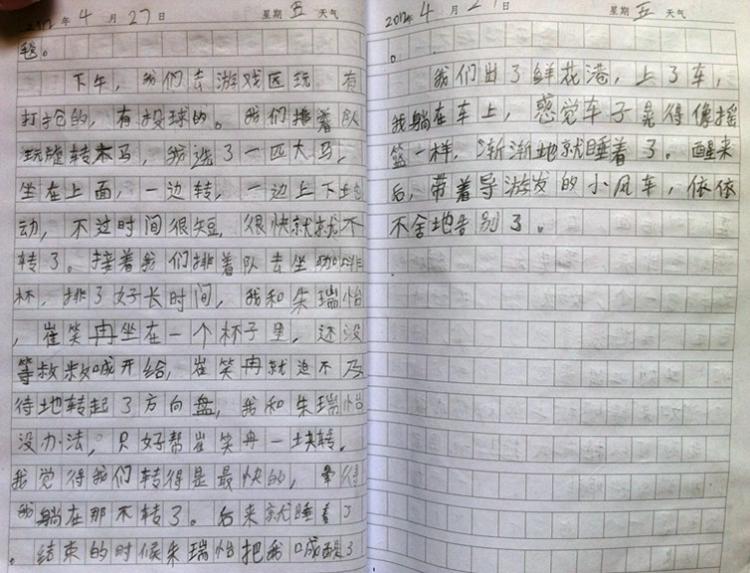 2012年 4 月 27 日 星期 五 天气
毯。
下午，我们去游戏区玩，有
打抢的，有投球的。我们排着队
玩旋转木马，我选了一匹大马，
坐在上面，一边转，一边上下地
动，不过时间很短，很快就就不
转了。接着我们排着队去坐咖啡
杯，排了好长时间，我和朱瑞怡
，崔笑冉坐在一个杯子里，还没
等叔叔喊开给，崔笑冉就迫不及
待地转起了方向盘，我和朱瑞怡
没办法，只好帮崔笑冉一块转，
我觉得我们转得是最快的，得
我躺在那不转了。后来就睡着了
。结束的时候朱瑞怡把我喊醒了
2012年 4 月 27 日 星期 五 天气
。
我们出了鲜花港，上了车，
我躺在车上，感觉车子晃得像摇
篮一样，渐渐地就睡着了。醒来
后，带着导游发的小风车，依依
不舍地告别了。